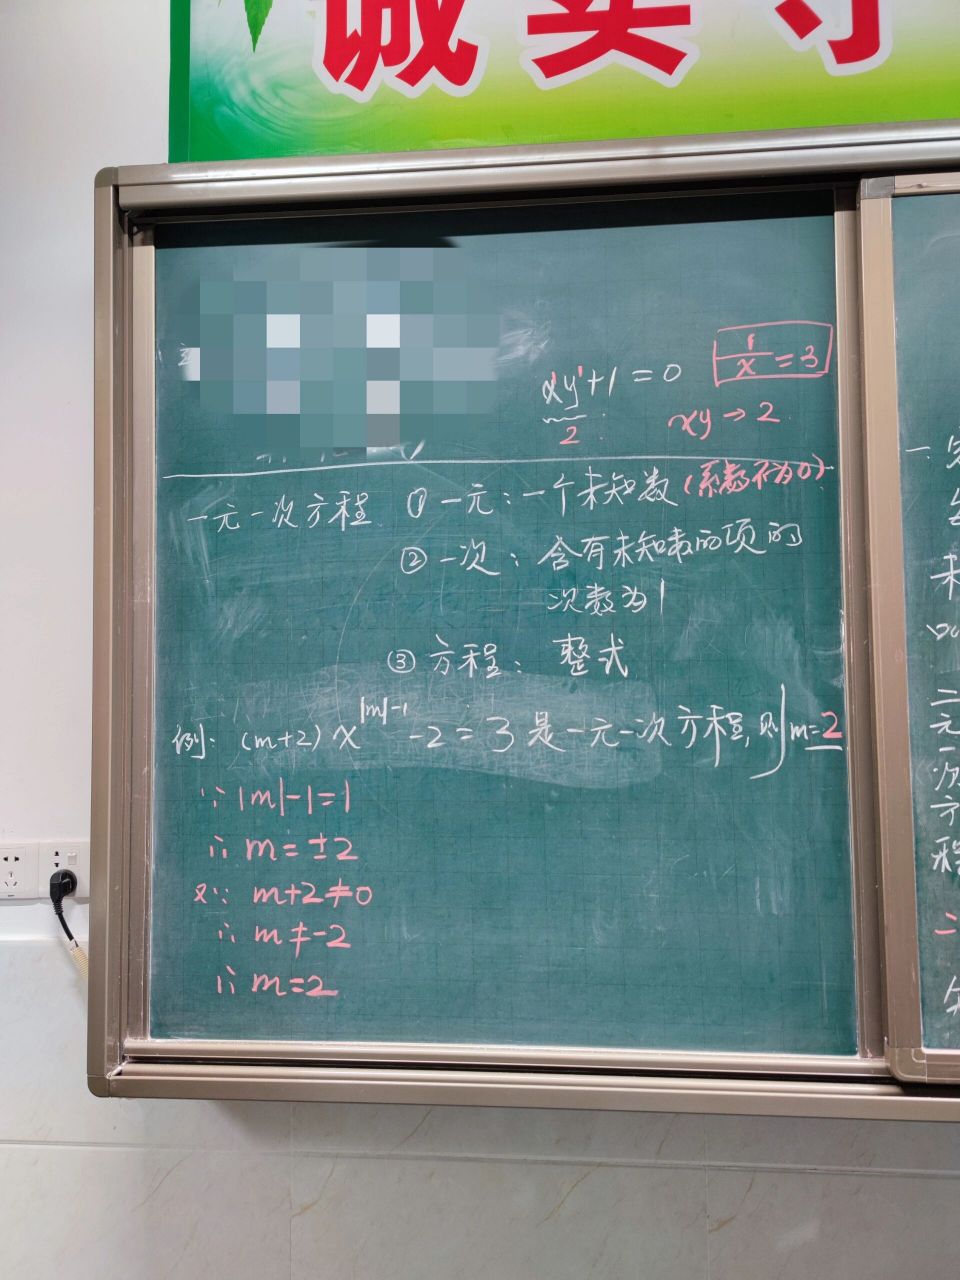 诚实守
x¹y¹+1=0
2
1/x=3
xy→2
一元一次方程 ①一元:一个未知数(系数不为0)
②一次:含有未知数的项的
次数为1
③方程:整式
例:(m+2)x^{|m|-1}-2=3是一元一次方程,则m=2
∵|m|-1=1
∴m=±2
又∵m+2≠0
∴m≠-2
∴m=2
一、
未
二元一次方程
二